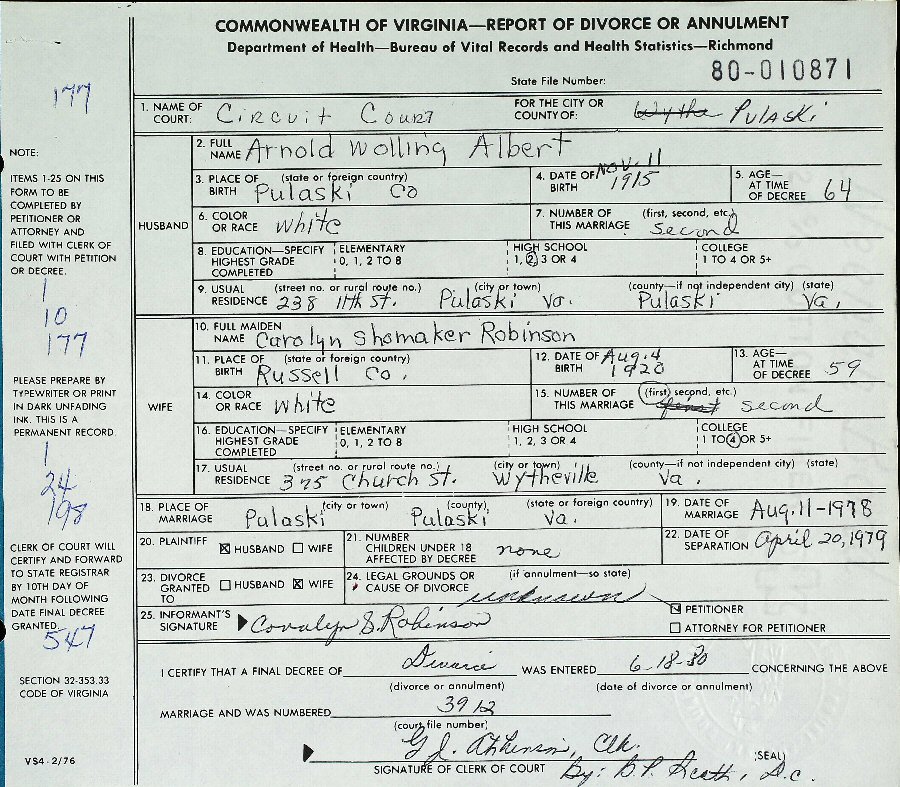 COMMONWEALTH OF VIRGINIA—REPORT OF DIVORCE OR ANNULMENT
Department of Health—Bureau of Vital Records and Health Statistics—Richmond
State File Number: 80-010871
177
1. NAME OF COURT: Circuit Court FOR THE CITY OR COUNTY OF: Wythe Pulaski
NOTE:
ITEMS 1-25 ON THIS
FORM TO BE
COMPLETED BY
PETITIONER OR
ATTORNEY AND
FILED WITH CLERK OF
COURT WITH PETITION
OR DECREE.
1
10
177
PLEASE PREPARE BY
TYPEWRITER OR PRINT
IN DARK UNFADING
INK. THIS IS A
PERMANENT RECORD.
1
24
198
CLERK OF COURT WILL
CERTIFY AND FORWARD
TO STATE REGISTRAR
BY 10TH DAY OF
MONTH FOLLOWING
DATE FINAL DECREE
GRANTED.
547
SECTION 32-353.33
CODE OF VIRGINIA
VS4-2/76
HUSBAND
2. FULL NAME Arnold Wolling Albert
3. PLACE OF BIRTH (state or foreign country) Pulaski Co
4. DATE OF BIRTH Nov. 11 1915
5. AGE—AT TIME OF DECREE 64
6. COLOR OR RACE White
7. NUMBER OF THIS MARRIAGE (first, second, etc.) second
8. EDUCATION—SPECIFY HIGHEST GRADE COMPLETED ELEMENTARY 0, 1, 2 TO 8 HIGH SCHOOL 1, 2, 3 OR 4 COLLEGE 1 TO 4 OR 5+
9. USUAL RESIDENCE (street no. or rural route no.) 238 11th St. (city or town) Pulaski Va. (county—if not independent city) Pulaski (state) Va.
WIFE
10. FULL MAIDEN NAME Carolyn Shomaker Robinson
11. PLACE OF BIRTH (state or foreign country) Russell Co.
12. DATE OF BIRTH Aug. 4 1920
13. AGE—AT TIME OF DECREE 59
14. COLOR OR RACE White
15. NUMBER OF THIS MARRIAGE (first, second, etc.) first second
16. EDUCATION—SPECIFY HIGHEST GRADE COMPLETED ELEMENTARY 0, 1, 2 TO 8 HIGH SCHOOL 1, 2, 3 OR 4 COLLEGE 1 TO 4 OR 5+
17. USUAL RESIDENCE (street no. or rural route no.) 375 Church St. (city or town) Wytheville (county—if not independent city) (state) Va.
18. PLACE OF MARRIAGE (city or town) Pulaski (county) Pulaski (state or foreign country) Va.
19. DATE OF MARRIAGE Aug. 11-1978
20. PLAINTIFF HUSBAND WIFE
21. NUMBER CHILDREN UNDER 18 AFFECTED BY DECREE none
22. DATE OF SEPARATION April 20, 1979
23. DIVORCE GRANTED TO HUSBAND WIFE
24. LEGAL GROUNDS OR CAUSE OF DIVORCE (if annulment—so state) unknown
25. INFORMANT'S SIGNATURE Coralyn S. Robinson
PETITIONER
ATTORNEY FOR PETITIONER
I CERTIFY THAT A FINAL DECREE OF Divorce WAS ENTERED 6-18-80 CONCERNING THE ABOVE
(divorce or annulment) (date of divorce or annulment)
MARRIAGE AND WAS NUMBERED 3912
(court file number)
G. J. Atkinson, Clk.
SIGNATURE OF CLERK OF COURT By: B.P. Heath, D.C. (SEAL)